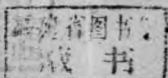 福建省图书馆
藏书